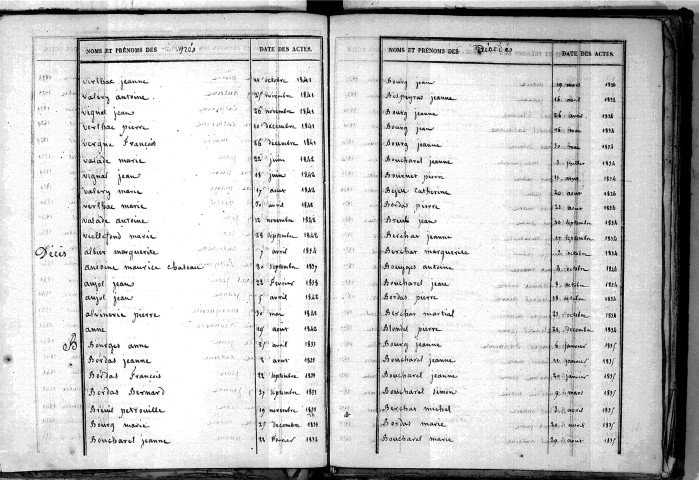 NOMS ET PRÉNOMS DES DATE DES ACTES.
verthac jeanne octobre 1841
valery antoine novembre 1841
vignal jean 26 novembre 1841
verthac pierre 10 decembre 1841
vergne François 26 decembre 1841
valade marie 22 juin 1842
vignal jean 18 juin 1842
valery marie 17 aout 1842
verthac marie avril 1842
valade antoine 12 novembre 1842
vieillefond marie 28 septembre 1842
Décès
albier marguerite 7 avril 1834
antoine maurice chateau 20 septembre 1837
anjol jean 22 Fevrier 1838
anjol jean 5 avril 1842
pierre 30 mai 1841
anne 19 aout 1842
B
Bourges anne avril 1833
Bordas jeanne 2 aout 1833
Bordas François 22 septembre 1833
Bordas Bernard 27 septembre 1833
Breuil petrouille 19 novembre 1833
Bourg marie 25 decembre 1833
Boucharel jeanne 22 Fevrier 1834
NOMS ET PRÉNOMS DES Décès DATE DES ACTES.
Bourg jean 19 mars 1834
Bespeyras jeanne 16 avril 1834
Bourg jeanne 26 avril 1834
Bourg jean 26 mai 1834
Bourg jeanne 30 mai 1834
Boucharel jeanne juillet 1834
Bournet pierre aout 1834
Catherine 20 aout 1834
Bordas pierre 22 aout 1834
Breuil jean 20 septembre 1834
Berchar jeanne 27 septembre 1834
Berchar marguerite 2 octobre 1834
Bourges antoine octobre 1834
Boucharel jean octobre 1834
Bordas pierre 18 octobre 1834
Berchar martial 23 octobre 1834
Blondel pierre 24 decembre 1834
Bourg jeanne 6 janvier 1835
Boucharel jeanne janvier 1835
Boucharel jeanne 20 janvier 1835
Boucharel simon 9 mars 1835
Berchar michel 2 avril 1835
Bordas marie 20 avril 1835
Boucharel marie 29 aout 1835